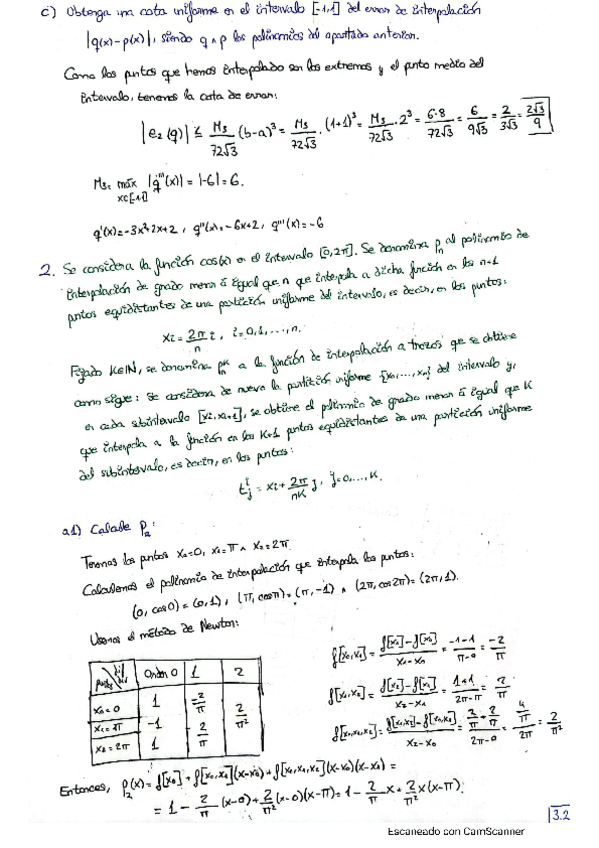 c) Obtenga una cota uniforme en el intervalo [-1,1] del error de interpolación
|q(x)-p(x)|, siendo q y p los polinomios del apartado anterior.
Como los puntos que hemos interpolado son los extremos y el punto medio del
intervalo, tenemos la cota de error:
|e₂(q)| ≤ M₃/72√3 (b-a)³ = M₃/72√3 · (1+1)³ = M₃/72√3 · 2³ = 6·8/72√3 = 6/9√3 = 2/3√3 = 2√3/9
M₃ = máx x∈[-1,1] |q'''(x)| = |-6| = 6.
q'(x) = -3x²+2x+2, q''(x) = -6x+2, q'''(x) = -6
2. Se considera la función cos(x) en el intervalo [0,2π]. Se denomina pₙ al polinomio de
interpolación de grado menor o igual que n que interpola a dicha función en los n+1
puntos equidistantes de una partición uniforme del intervalo, es decir, en los puntos:
xᵢ = 2π/n i, i=0,1,...,n.
Fijado K∈ℕ, se denomina pₙᴷ a la función de interpolación a trozos que se obtiene
como sigue: se considera de nuevo la partición uniforme {x₀,...,xₙ} del intervalo y,
en cada subintervalo [xᵢ,xᵢ₊₁], se obtiene el polinomio de grado menor o igual que K
que interpola a la función en los K+1 puntos equidistantes de una partición uniforme
del subintervalo, es decir, en los puntos:
tⱼⁱ = xᵢ + 2π/nK j, j=0,...,K.
a1) Calcule P₂:
Tenemos los puntos x₀=0, x₁=π ∧ x₂=2π.
Calculemos el polinomio de interpolación que interpola los puntos:
(0, cos0) = (0,1), (π, cosπ) = (π,-1) ∧ (2π, cos2π) = (2π,1).
Usamos el método de Newton:
Orden 0 1 2
x₀=0 1 -2/π 2/π²
x₁=π -1 2/π
x₂=2π 1
f[x₀,x₁] = f[x₁]-f[x₀]/x₁-x₀ = -1-1/π-0 = -2/π
f[x₁,x₂] = f[x₂]-f[x₁]/x₂-x₁ = 1+1/2π-π = 2/π
f[x₀,x₁,x₂] = f[x₁,x₂]-f[x₀,x₁]/x₂-x₀ = 2/π+2/π/2π-0 = 4/π/2π = 2/π²
Entonces, p₂(x) = f[x₀]+f[x₀,x₁](x-x₀)+f[x₀,x₁,x₂](x-x₀)(x-x₁) =
= 1 - 2/π (x-0) + 2/π² (x-0)(x-π) = 1 - 2/π x + 2/π² x(x-π).
3.2
Escaneado con CamScanner